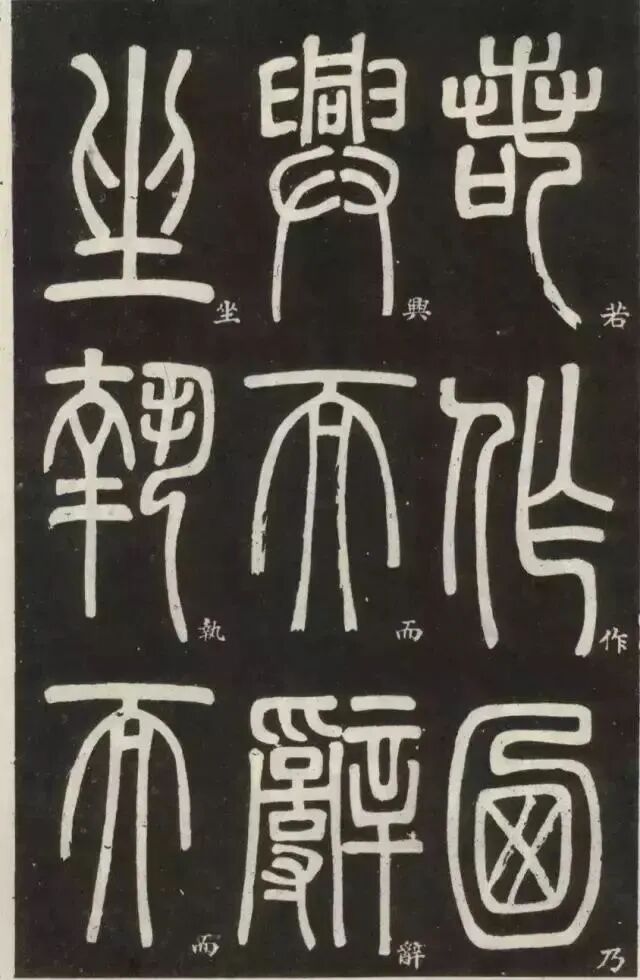 若作乃
興而辭
坐執而